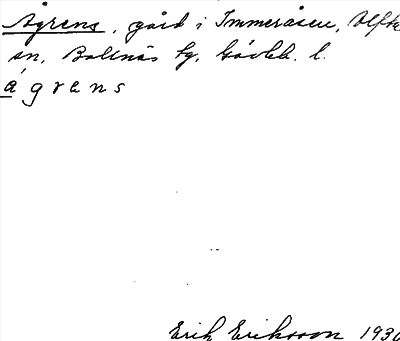 Ågrens, gård i Immeråsen, Alfta
sn, Bollnäs tg, Gävleb. l.
ágrens
Erik Eriksson 1930